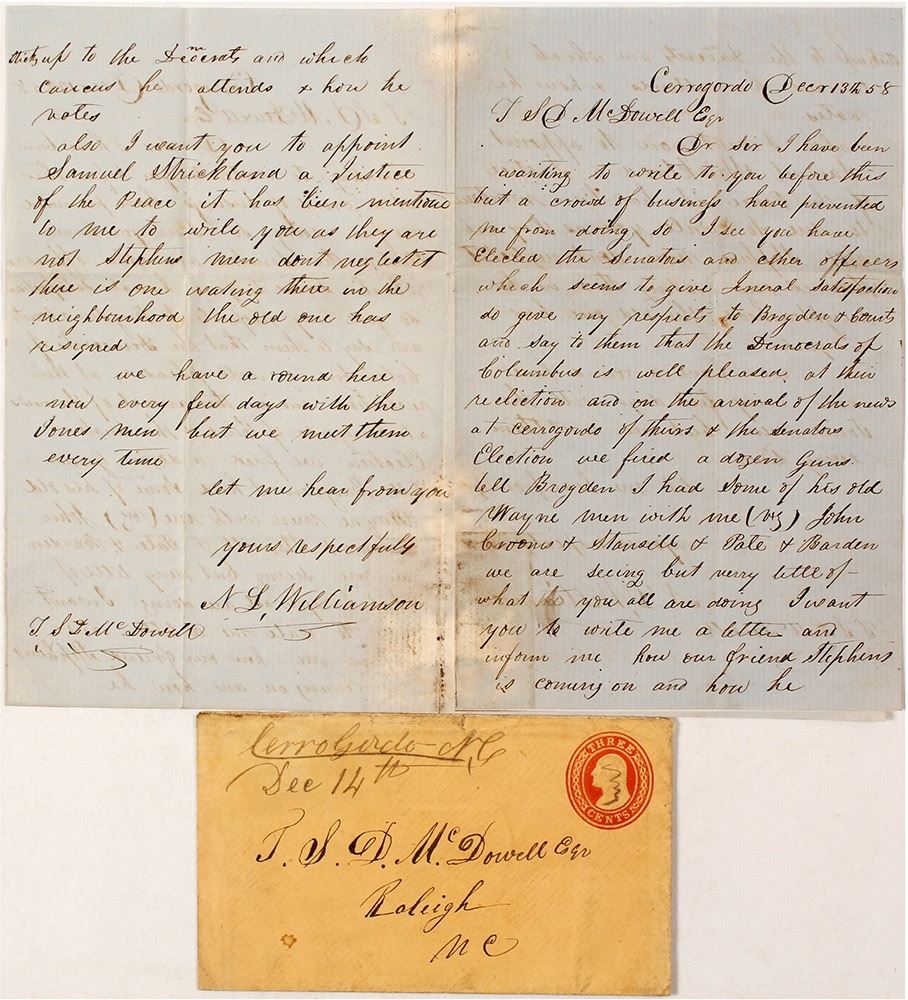 Cerrogordo Decr 13th 58
T S D McDowell Esqr
Dr ser I have been
wanting to write to you before this
but a crowd of business have prevented
me from doing so I see you have
Elected the Senators and other officers
which seems to give Jneral satisfaction
do give my respects to Brogden &
and say to them that the Democrats of
Columbus is well pleased at their
reelection and on the arrival of the news
at cerrogordo of theirs & the senators
Election we fired a dozen Guns
tell Brogden I had some of his old
Wayne men with me (viz) John
Crooms & Stansill & Pate & Barden
we are seeing but verry little of
what you all are doing I want
you to write me a letter and
inform me how our friend Stephens
is coming on and how he
sticks up to the Democrats and which
caucus he attends & how he
votes
also I want you to appoint
Samuel Strickland a Justice
of the Peace it has been mentione
to me to write you as they are
not Stephens men dont neglect it
there is one wating there in the
neighbourhood the old one has
resigned
we have a round here
now every few days with the
Jones men but we meet them
every time
let me hear from you
yours respectfully
N L Williamson
T. S D McDowell
CerroGordo N,C
Dec 14th
THREE
CENTS
T. S. D. McDowell Esqr
Raleigh
N C